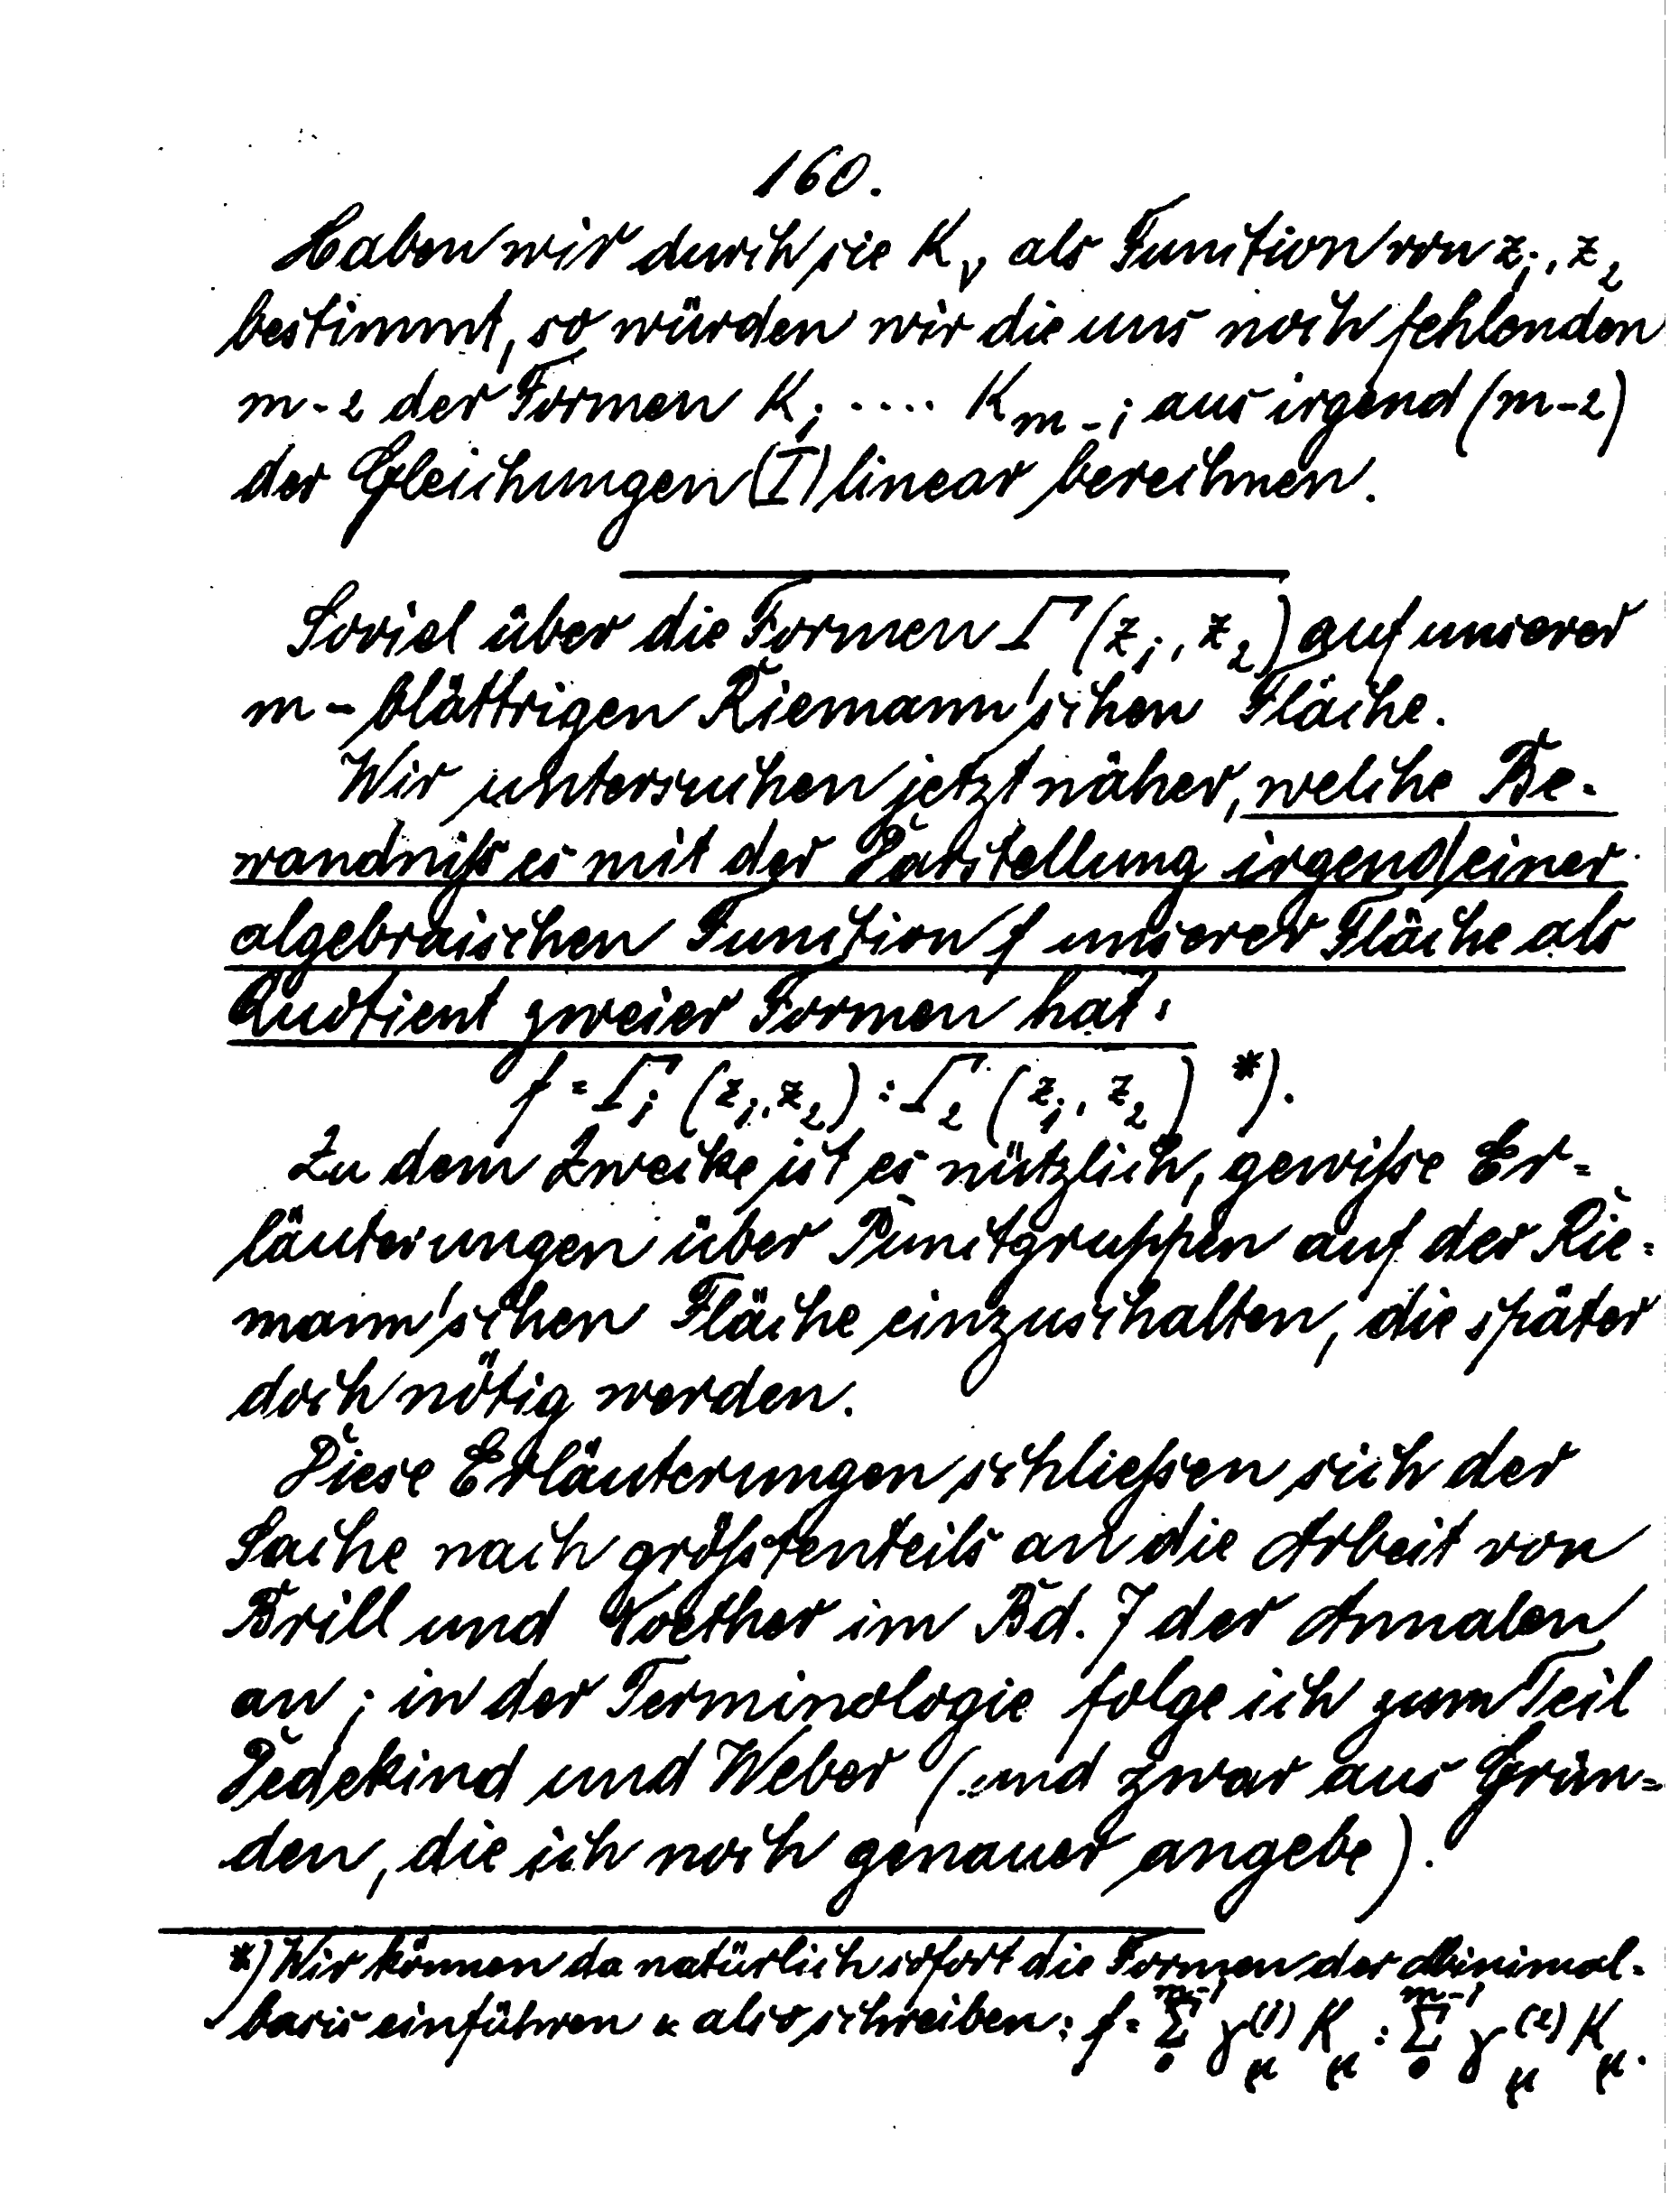 160.
Haben wir durch sie K_ν als Function von z₁, z₂
bestimmt, so würden wir die uns noch fehlenden
m-2 der Formen K₁ .... K_{m-1} aus irgend (m-2)
der Gleichungen (I) linear berechnen.
Soviel über die Formen Γ(z₁, z₂) auf unserer
m-blättrigen Riemann'schen Fläche.
Wir untersuchen jetzt näher, welche Be-
wandniß es mit der Darstellung irgend einer
algebraischen Function f unserer Fläche als
Quotient zweier Formen hat:
f = Γ₁ (z₁, z₂) : Γ₂ (z₁, z₂) *).
Zu dem Zwecke ist es nützlich, gewiße Er=
läuterungen über Punctgruppen auf der Rie=
mann'schen Fläche einzuschalten, die später
doch nötig werden.
Diese Erläuterungen schließen sich der
Sache nach größtenteils an die Arbeit von
Brill und Noether im Bd. 7 der Annalen
an; in der Terminologie folge ich zum Teil
Dedekind und Weber (und zwar aus Grün=
den, die ich noch genauer angebe).
*) Wir können da natürlich sofort die Formen der Minimal-
basis einführen & also schreiben: f = Σ₀^{m-1} γ_μ^{(1)} K_μ : Σ₀^{m-1} γ_μ^{(2)} K_μ.